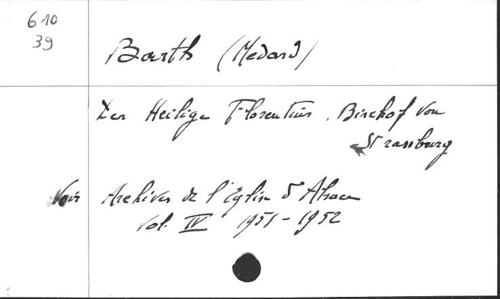 610
39
Barth (Medard)
Der Heilige Florentius, Bischof von
Strassburg
Voir Archives de l'Eglise d'Alsace
Vol. IV 1951-1952